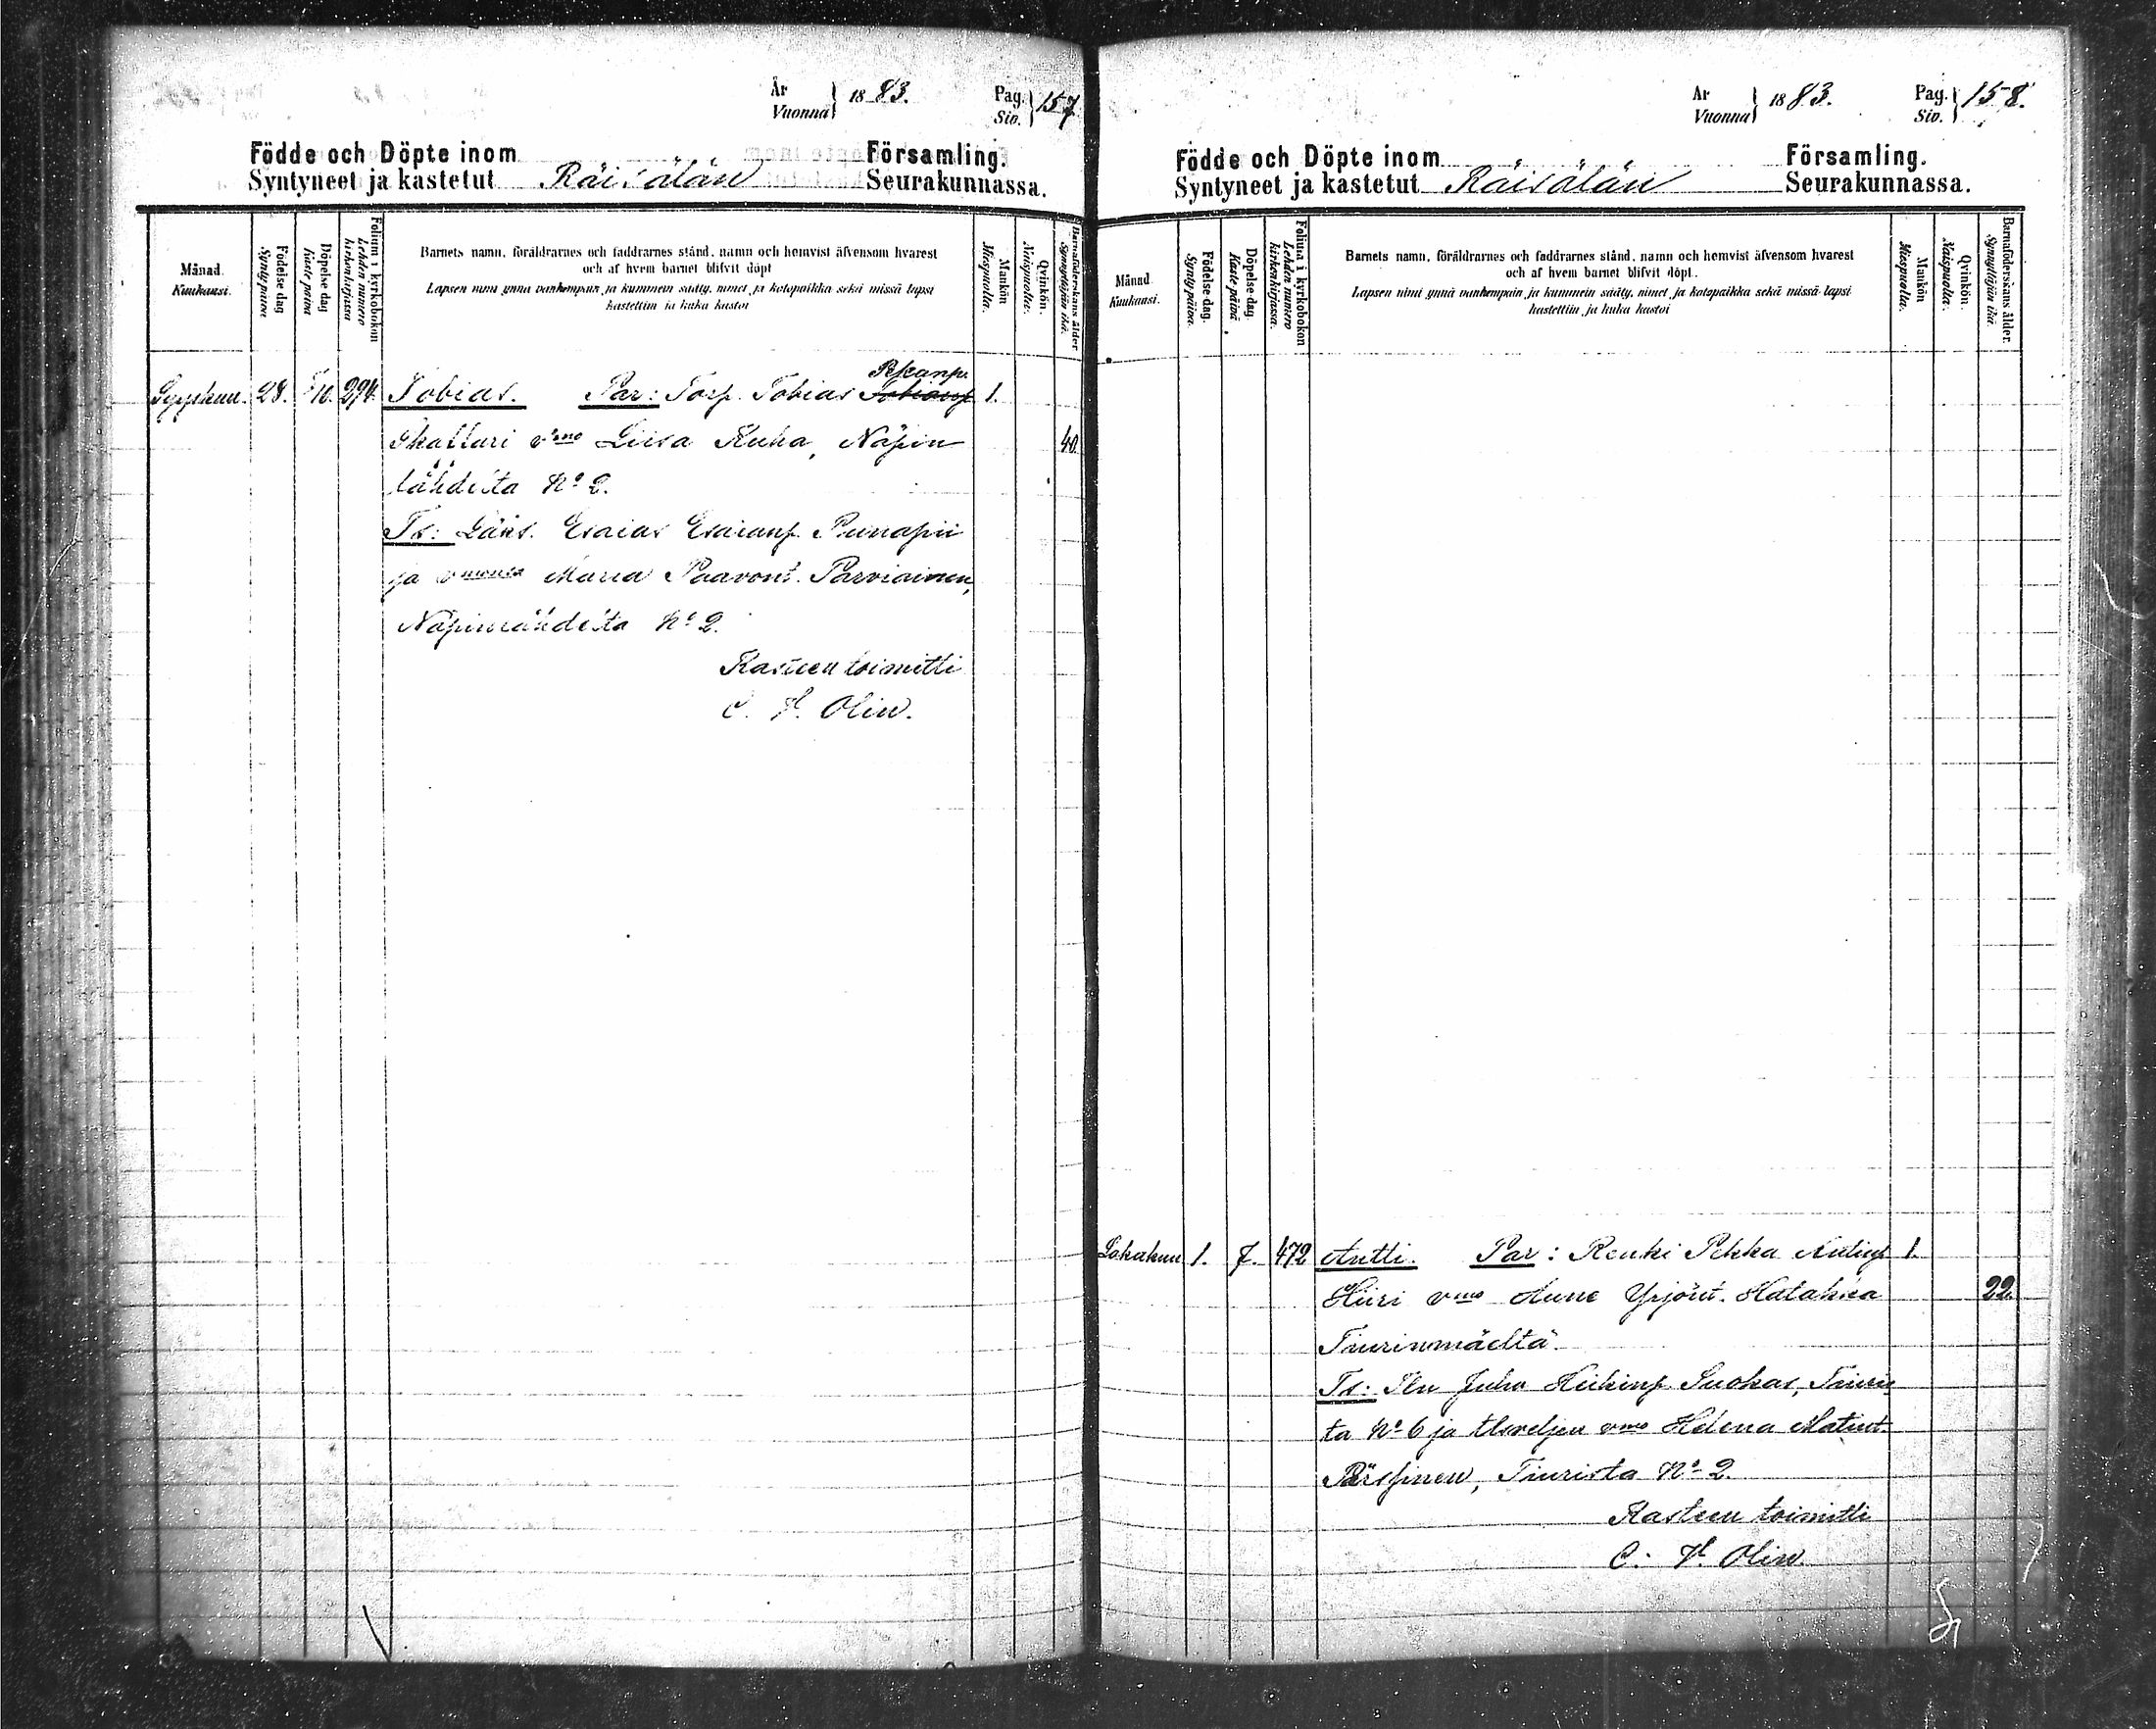 År
Vuonna } 1883.
Pag.
Siv. } 157
Födde och Döpte inom Församling.
Syntyneet ja kastetut Räisälän Seurakunnassa.
Månad.
Kuukausi.
Födelse dag
Synty päivä
Döpelse dag
Kaste päivä
Folium i kyrkobokon
Lehden numero
kirkonkirjassa
Barnets namn, föräldrarnes och faddrarnes stånd, namn och hemvist äfvensom hvarest
och af hvem barnet blifvit döpt
Lapsen nimi ynnä vanhempain ja kummein sääty, nimet ja kotopaikka sekä missä lapsi
kastettiin ja kuka kastoi
Mankön
Miespuolta.
Qvinkön.
Naispuolta.
Barnaföderskans ålder
Synnyttäjän ikä.
Syyskuu. 28. 294. Tobias. Par: Torp. Tobias 1.
Skattari vmo Liisa Kuha, Näpin 40.
lähdeltä No 2.
Ts: Esaias Esaianp. Punapii
ja Maria Paavont. Parviainen,
No 2.
Kasteen toimitti
C. F. Olin.
År
Vuonna } 1883.
Pag.
Siv. } 158.
Födde och Döpte inom Församling.
Syntyneet ja kastetut Räisälän Seurakunnassa.
Månad.
Kuukausi.
Födelse dag.
Synty päivä.
Döpelse dag.
Kaste päivä.
Folium i kyrkobokon
Lehden numero
kirkonkirjassa.
Barnets namn, föräldrarnes och faddrarnes stånd, namn och hemvist äfvensom hvarest
och af hvem barnet blifvit döpt.
Lapsen nimi ynnä vanhempain ja kummein sääty, nimet ja kotopaikka sekä missä lapsi
kastettiin ja kuka kastoi
Mankön
Miespuolta.
Qvinkön.
Naispuolta.
Barnaföderskans ålder.
Synnyttäjän ikä.
Lokakuu 1. 7. 472 Antti. Par: Renki Pekka Antinp 1.
Hiiri vmo Anne Yrjönt. Hatakka 22.
Tiurinmäeltä.
Ts: Juho Heikinp Suokas, Tiuris
ta No 6 ja vmo Helena Matint.
Pärssinen, Tiurista No 2.
Kasteen toimitti
C. F. Olin.